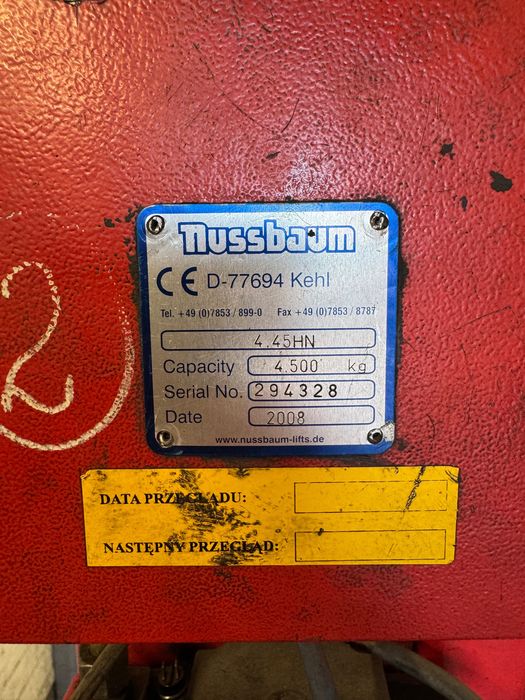 nussbaum
CE D-77694 Kehl
Tel. +49 (0)7853 / 899-0 Fax +49 (0)7853 / 8787
4.45HN
Capacity 4.500 kg
Serial No. 294328
Date 2008
www.nussbaum-lifts.de
2
DATA PRZEGLĄDU:
NASTĘPNY PRZEGLĄD: